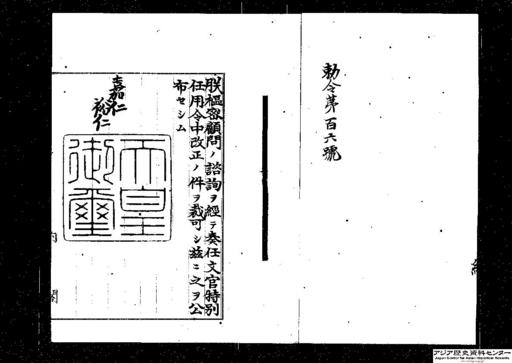 勅令第百六號
朕樞密顧問ノ諮詢ヲ經テ奏任文官特別
任用令中改正ノ件ヲ裁可シ茲ニ之ヲ公
布セシム
嘉仁
裕仁
天皇
御璽
内
閣
アジア歴史資料センター
Japan Center for Asian Historical Records